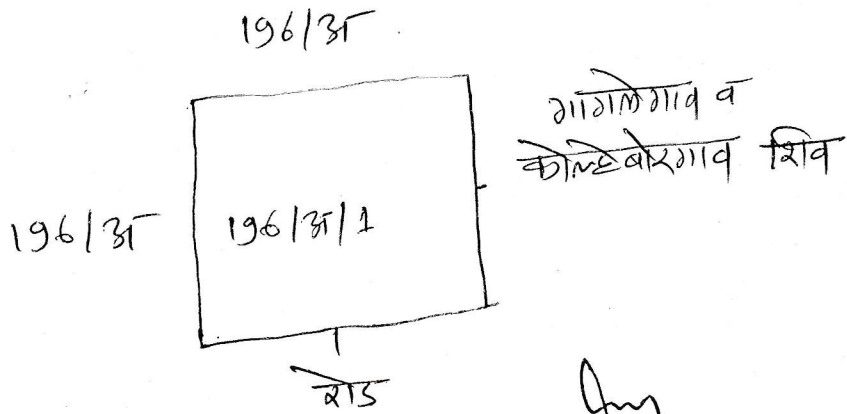 196/अ
गागलेगाव व
कोल्हेबोरगाव शिव
196/अ
196/अ/1
रोड